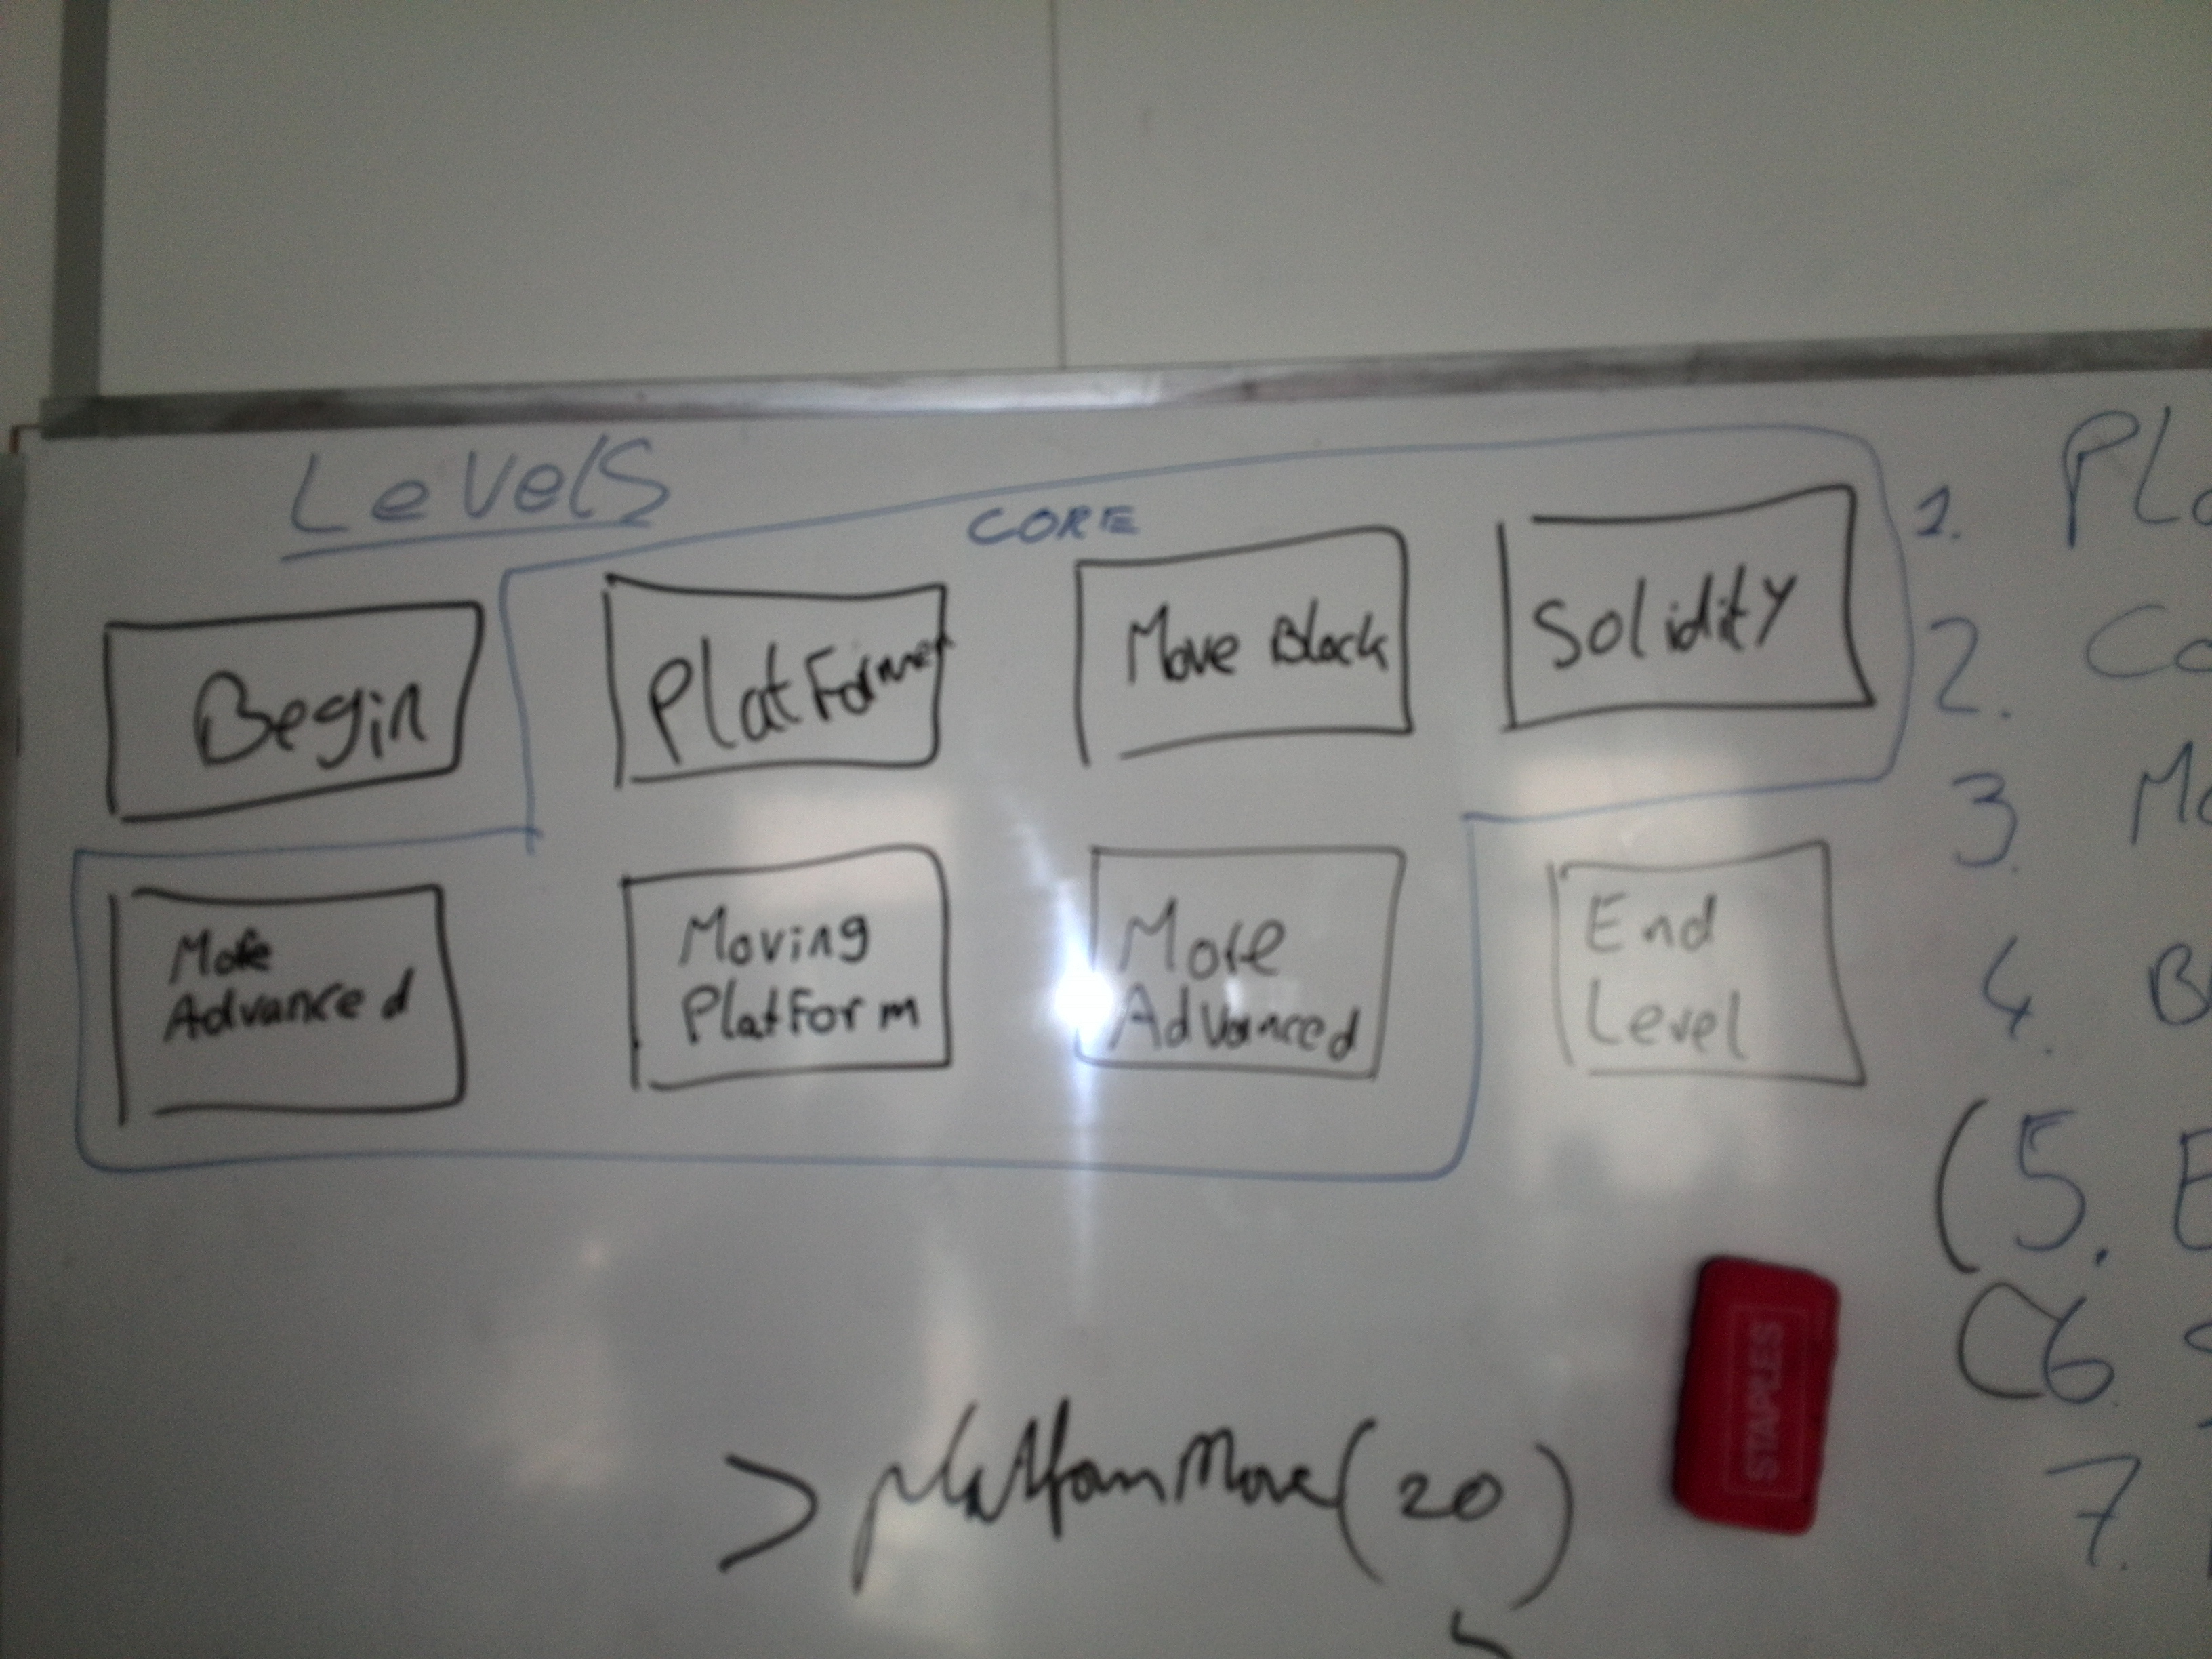 Levels
CORE
Begin
Platformer
Move Block
Solidity
More
Advanced
Moving
Platform
More
Advanced
End
Level
> platformMove(20)
STAPLES
1. Pla
2. Co
3. Mo
4. B
(5. E
(6
7.